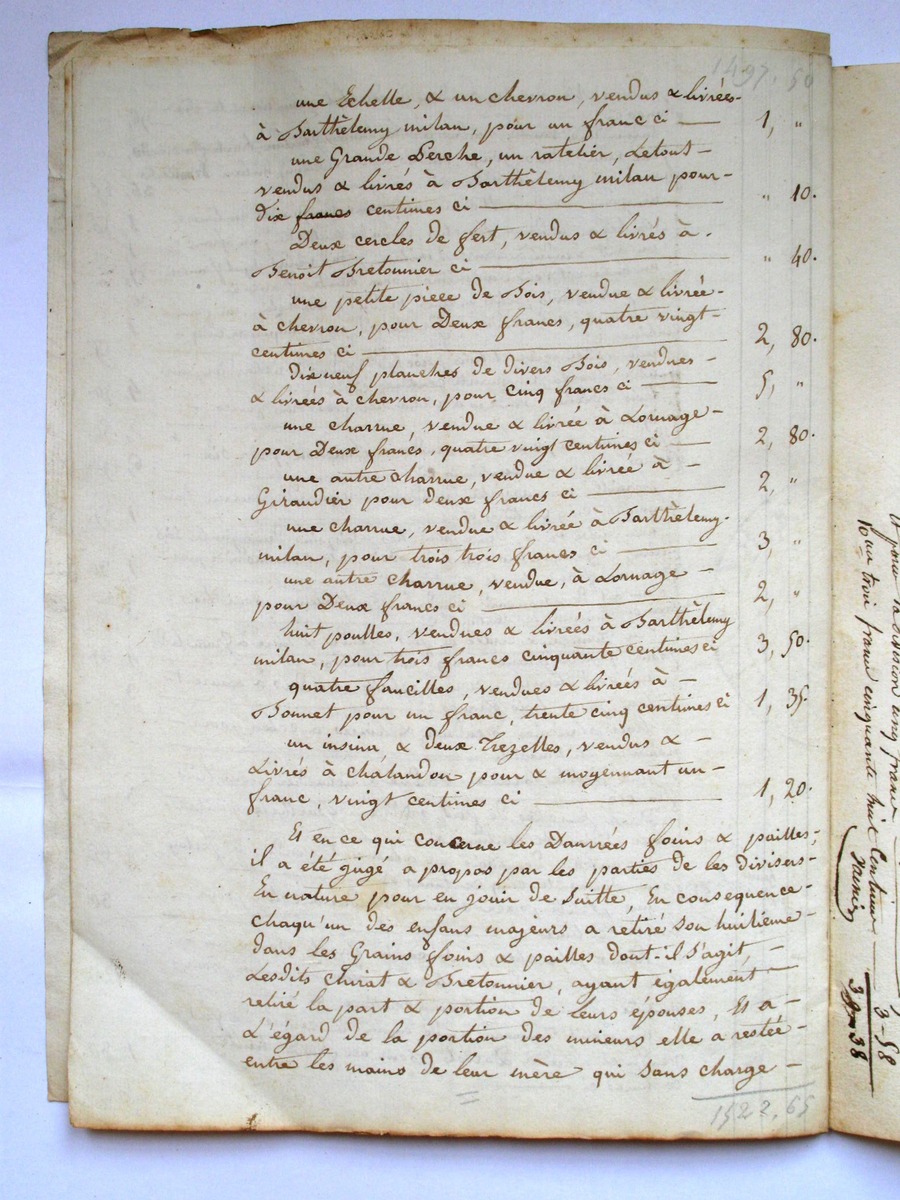 1497. 50
une Echelle, & un chevron, vendus & livrées-
à Barthèlemy milan, pour un franc ci — 1, "
une Grande Perche, un ratelier, Letout-
vendus & livrés à Barthèlemy milan pour-
dix francs centimes ci — " 10.
Deux cercles de fert, vendus & livrés à.
Benoit Bretonnier ci — " 40.
une petite piece de Bois, vendue & livrée-
à chevron, pour Deux francs, quatre vingt-
centimes ci — 2, 80.
dix neuf planches de divers Bois, vendues-
& livrées à chevron, pour cinq francs ci — 5, "
une charrue, vendue & livrée à Lornage-
pour Deux francs, quatre vingt centimes ci — 2, 80.
une autre charrue, vendue & livrée à-
Giraudier pour deux francs ci — 2, "
une charrue, vendue & livrée à Barthèlemy.
milan, pour trois trois francs ci — 3, "
une autre charrue, vendue, à Lornage-
pour Deux francs ci — 2, "
huit poulles, vendues & livrées à Barthèlemy
milan, pour trois francs cinquante centimes ci 3, 50.
quatre faucilles, vendues & livrées à-
Bonnet pour un franc, trente cinq centimes ci 1, 35.
un insina & deux Trezelles, vendus &-
Livrés à châlandon pour & moyennant un-
franc, vingt centimes ci — 1, 20.
Et en ce qui concerne les Danrées foins & pailles,
il a été gugé a propos par les parties de les divisers-
En nature pour en jouir de Suitte, En consequence-
chaqu'un des enfans majeurs a retiré son huitieme-
dans les Grains foins & pailles Dont-il S'agit,-
Lesdits chirat & Bretonnier, ayant également-
retiré la part & portion de leurs épouses, Et a-
L'égard de la portion des mineurs elle a restée-
entre les mains de leur mère qui sans charge-
1522. 65
pour la division cinq francs
trois francs cinquante huit Centimes
3-58
38